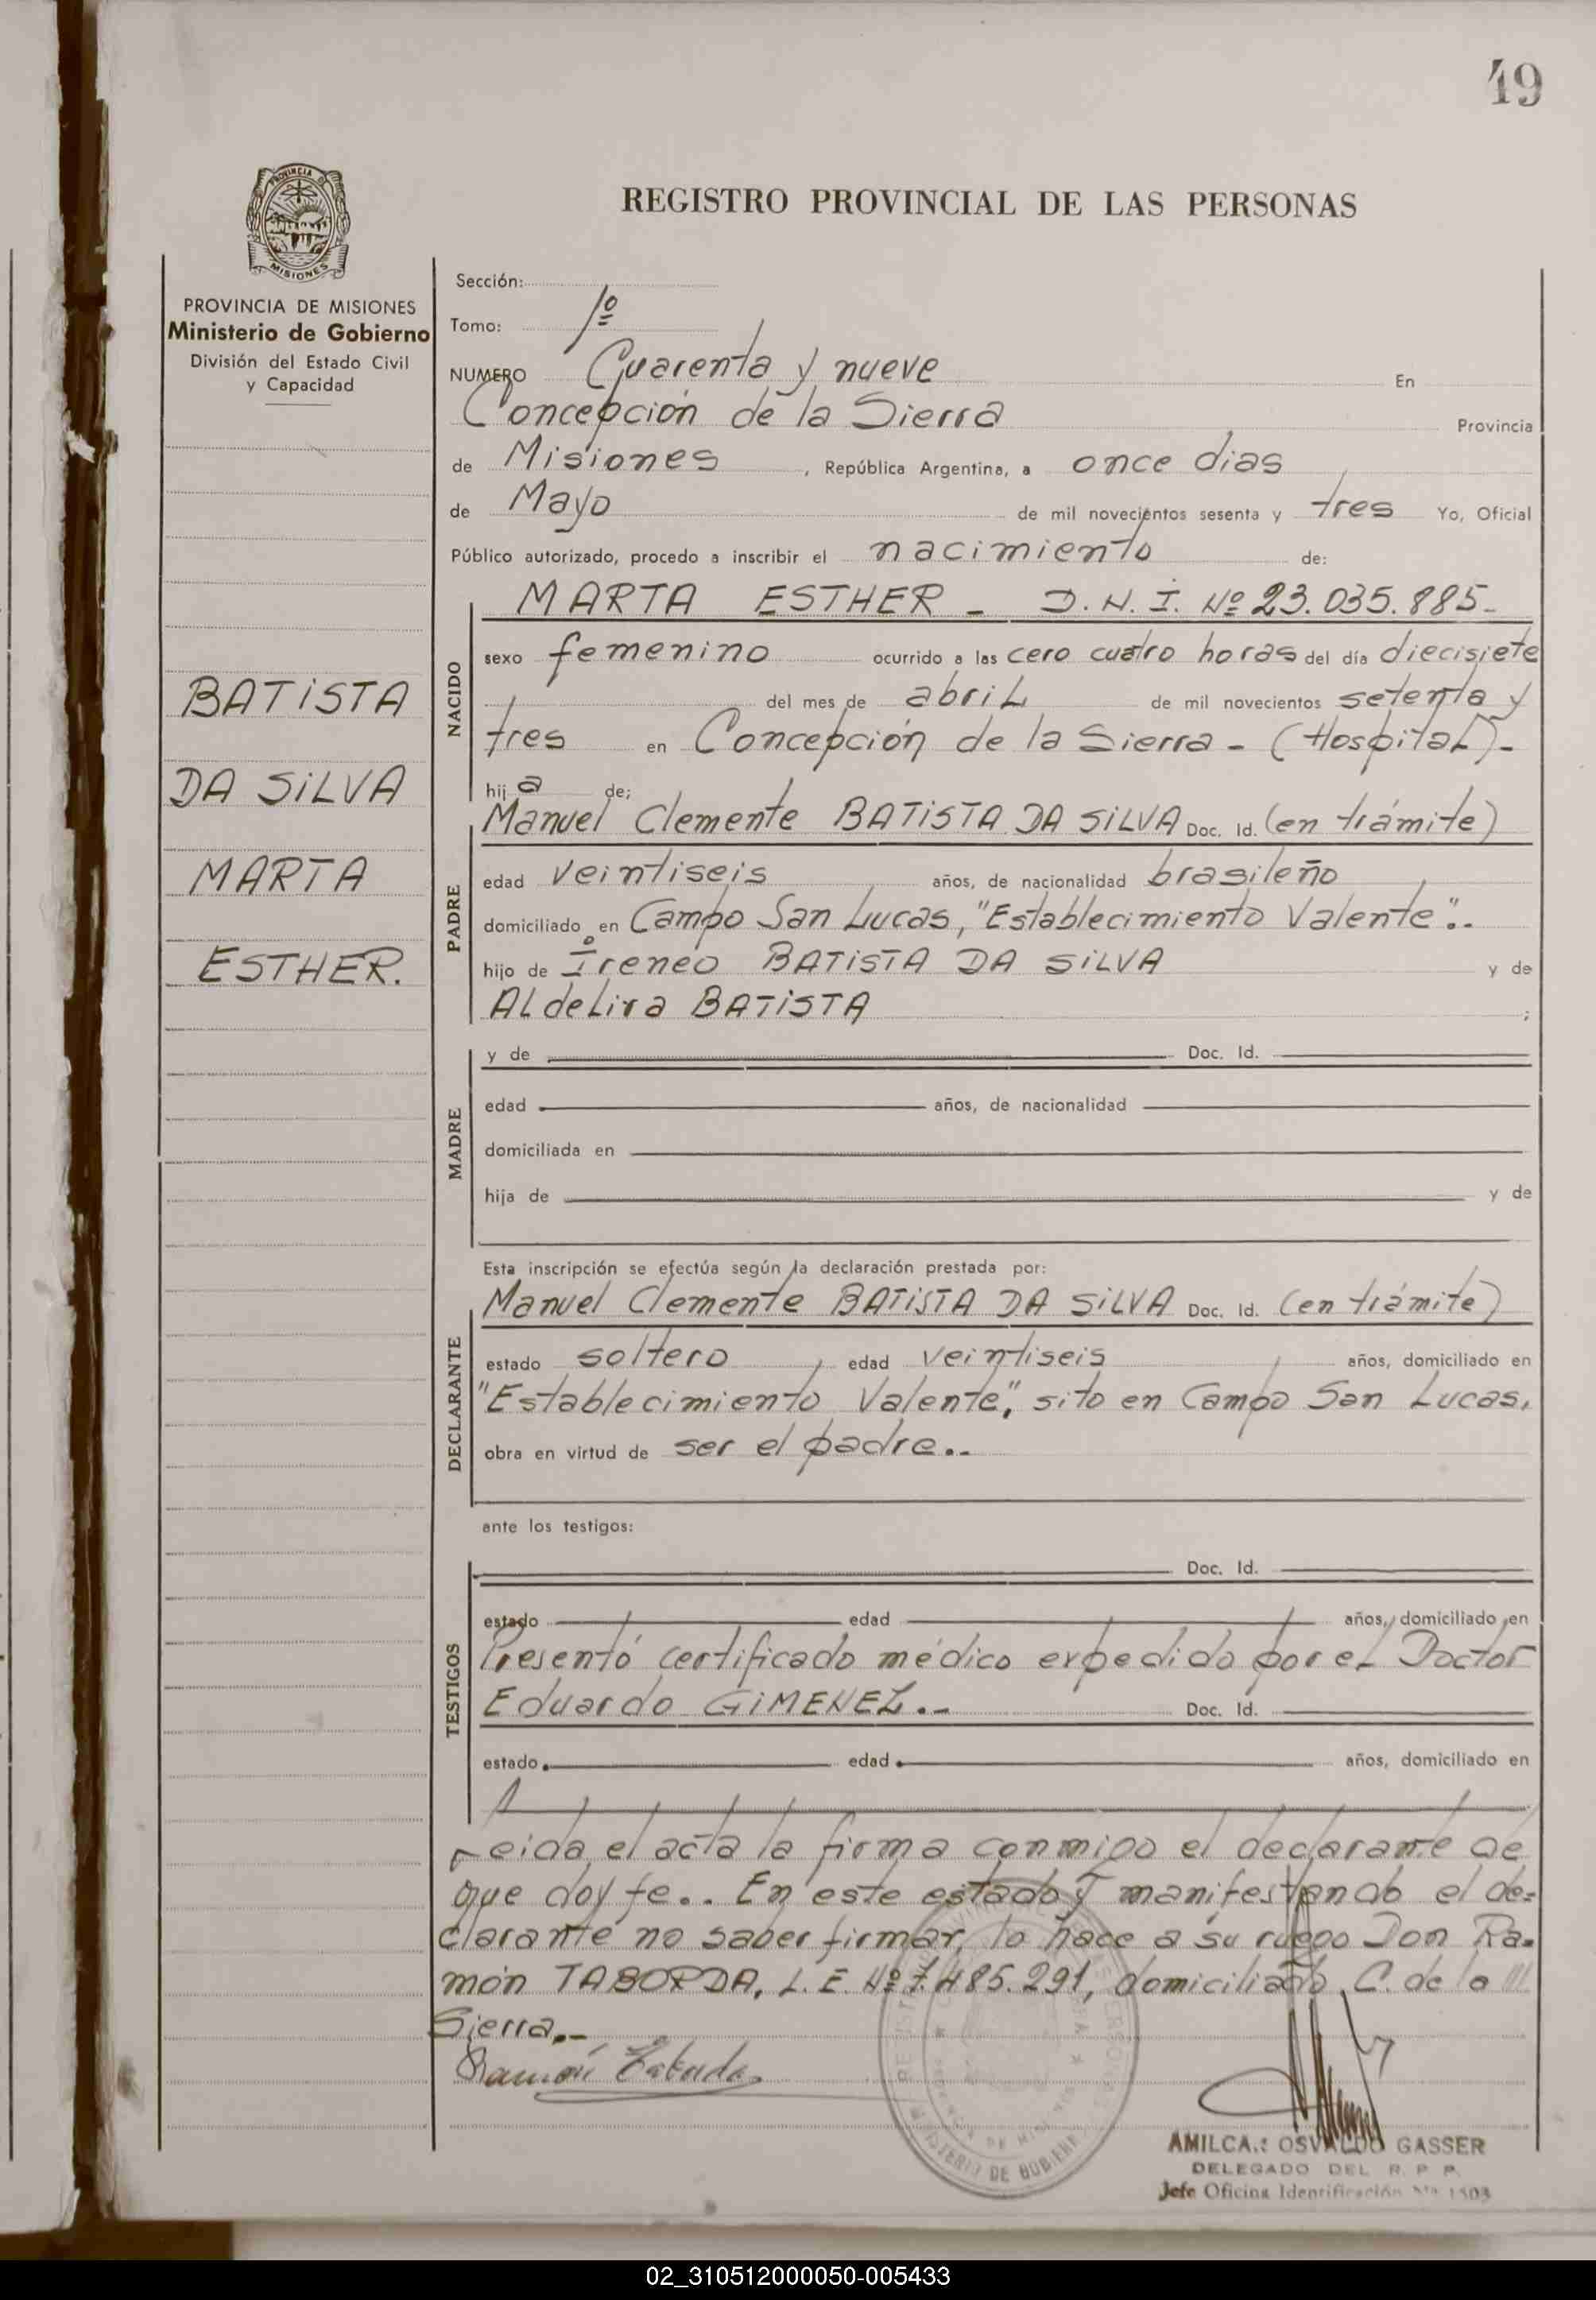 49
REGISTRO PROVINCIAL DE LAS PERSONAS
PROVINCIA DE MISIONES
Ministerio de Gobierno
División del Estado Civil
y Capacidad
BATISTA
DA SILVA
MARTA
ESTHER.
Sección:
Tomo: 1º
NUMERO Cuarenta y nueve En
Concepción de la Sierra Provincia
de Misiones, República Argentina, a once dias
de Mayo de mil novecientos sesenta y tres Yo, Oficial
Público autorizado, procedo a inscribir el nacimiento de:
NACIDO
MARTA ESTHER - D.N.I. Nº 23.035.885-
sexo femenino ocurrido a las cero cuatro horas del día diecisiete
del mes de abril de mil novecientos setenta y
tres en Concepción de la Sierra - (Hospital)-
hija de:
PADRE
Manuel Clemente BATISTA DA SILVA Doc. Id. (en trámite)
edad veintiseis años, de nacionalidad brasileño
domiciliado en Campo San Lucas, "Establecimiento Valente".-
hijo de Ireneo BATISTA DA SILVA y de
Aldelira BATISTA ;
MADRE
y de Doc. Id.
edad años, de nacionalidad
domiciliada en
hija de y de
Esta inscripción se efectúa según la declaración prestada por:
DECLARANTE
Manuel Clemente BATISTA DA SILVA Doc. Id. (en trámite)
estado soltero, edad veintiseis años, domiciliado en
"Establecimiento Valente", sito en Campo San Lucas,
obra en virtud de ser el padre.-
ante los testigos:
TESTIGOS
Doc. Id.
estado edad años, domiciliado en
Presentó certificado médico expedido por el Doctor
Eduardo GIMENEZ.- Doc. Id.
estado edad años, domiciliado en
Leida el acta la firma conmigo el declarante de
que doy fe.. En este estado y manifestando el de=
clarante no saber firmar, lo hace a su ruego Don Ra=
món TABORDA, L.E. Nº 7.485.291, domiciliado C. de la
Sierra.-
Ramón Taborda
MINISTERIO DE GOBIERNO
AMILCAR OSVALDO GASSER
DELEGADO DEL R. P. P.
Jefe Oficina Identificación Nº 1503
02_310512000050-005433